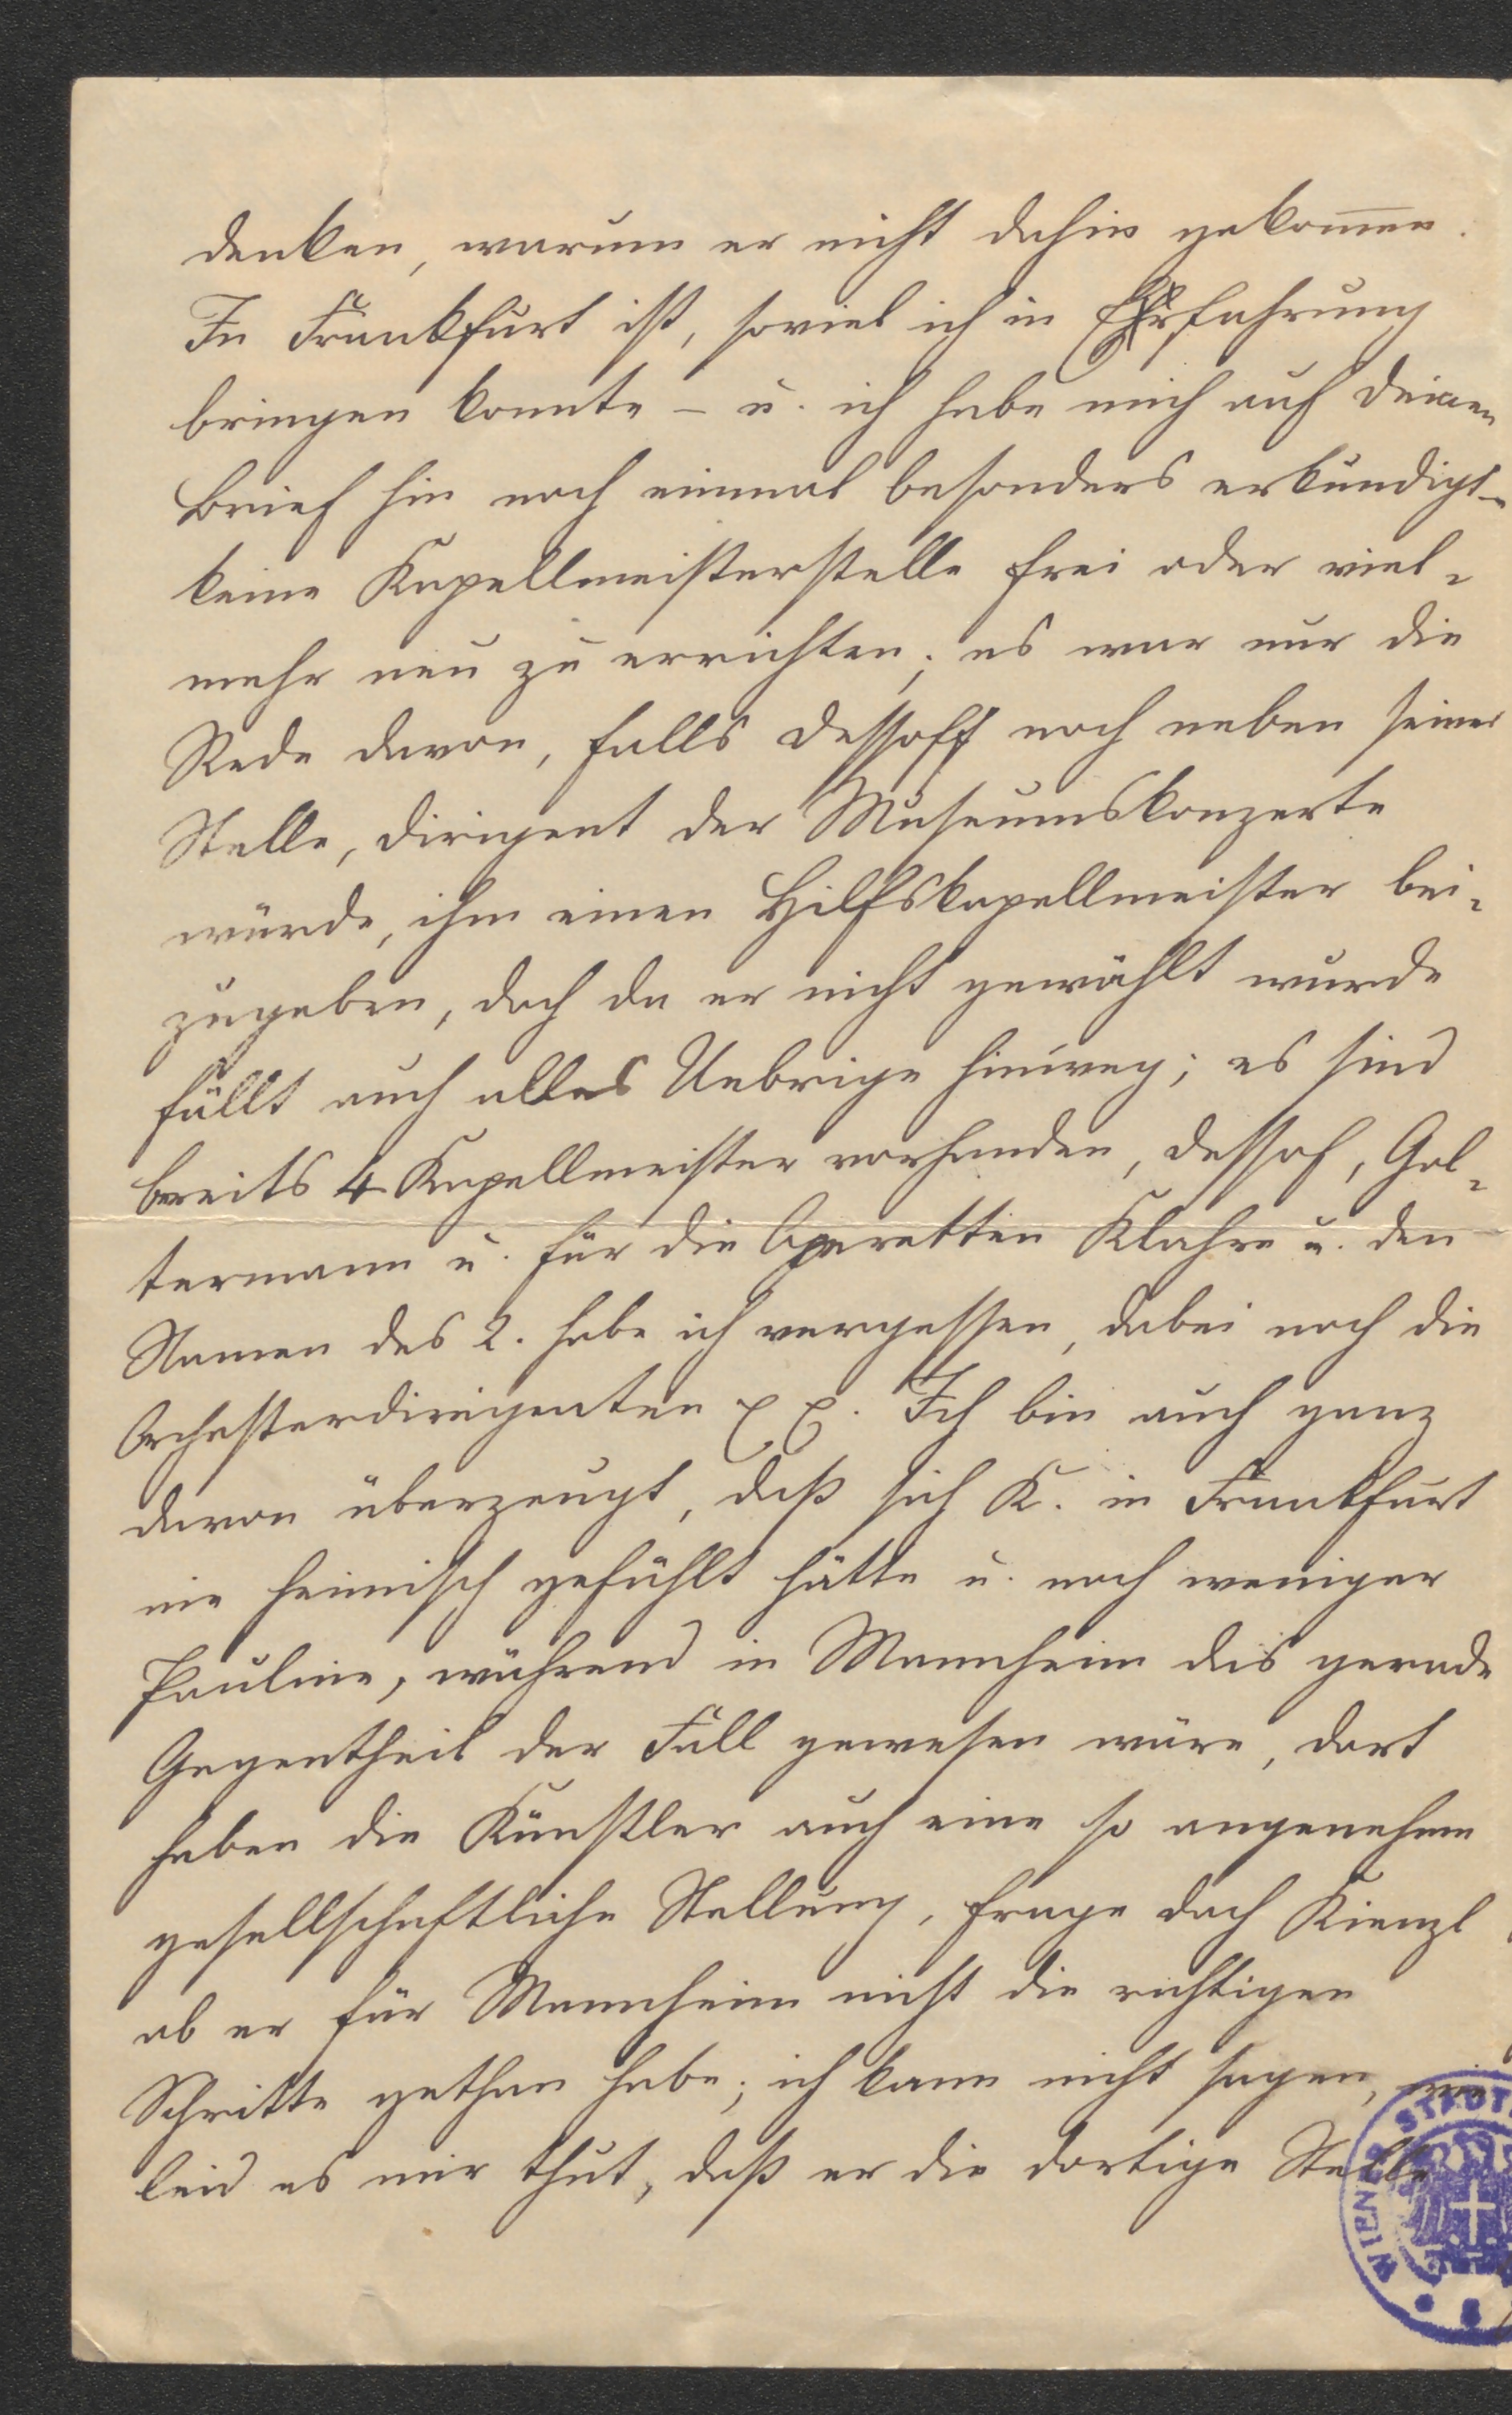 denken, warum er nicht dahin gekom̅en.
In Frankfurt ist, soviel ich in Erfahrung
bringen konnte – u. ich habe mich auf Deinen
Brief hin noch einmal besonders erkundigt –
keine Kapellmeisterstelle frei oder viel-
mehr neu zu errichten; es war nur die
Rede davon, falls Dessoff noch neben seiner
Stelle, Dirigent der Museumskonzerte
würde, ihm einen Hilfskapellmeister bei-
zugeben, doch da er nicht gewählt wurde
fällt auch alles Uebrige hinweg; es sind
bereits 4 Kapellmeister vorhanden, Dessof, Gol-
termann u. für die Operetten Klahre u. den
Namen des 2. habe ich vergessen, dabei noch die
Orchesterdirigenten Ich bin auch ganz
davon überzeugt, daß sich K. in Frankfurt
nie heimisch gefühlt hätte u. noch weniger
Pauline, während in Mannheim das gerade
Gegentheil der Fall gewesen wäre, dort
haben die Künstler auch eine so angenehme
gesellschaftliche Stellung, frage doch Kienzl,
ob er für Mannheim nicht die richtigen
Schritte gethan habe; ich kann nicht sagen, wie
leid es mir thut, daß er die dortige Stelle
WIENER STADT